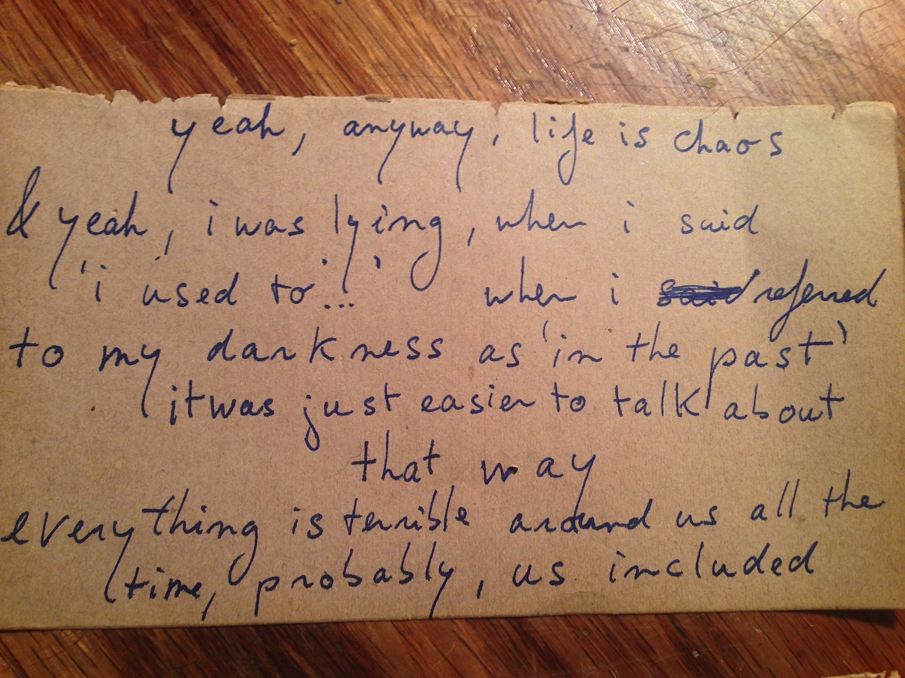 yeah, anyway, life is chaos
& yeah, i was lying, when i said
'i used to...' when i said referred
to my darkness as 'in the past'
it was just easier to talk about
that way
everything is terrible around us all the
time, probably, us included